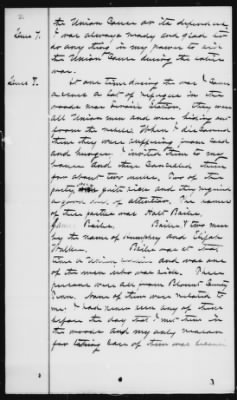 2.
Ques 7. the Union Cause or its defenders
I was always ready and glad to
do any thing in my power to aid
the Union Cause during the entire
war.
Ques 8. At one time during the war I came
across a lot of refugees in the
woods near Station. They were
all Union men and were hiding out
from the rebels. When I discovered
them they were suffering from cold
and hunger. I invited them to my
house and there concealed them
for about two weeks. Two of the
party were quite sick and they required
a good deal of attention. The names
of these parties was Hart Bailes,
James Bailes, Bailes & two men
by the name of and Elijah
Bailes was at that
time a and was one
of the men who was sick. These
persons were all from Blount County
Tenn. None of them were related to
me. I had never seen any of them
before the day that I met them in
the woods and my only reason
for taking care of them was because
3